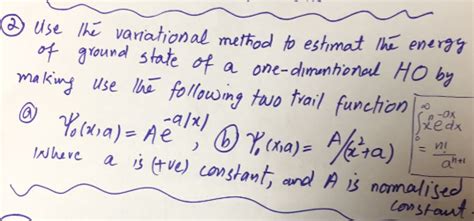 ② Use the variational method to estimat the energy
of ground state of a one-dimentional HO by
making use the following two trail function
ⓐ ψ₀(x,a) = A e^{-a|x|}, ⓑ ψ₀(x,a) = A/(x²+a)
∫₀^∞ xⁿ e^{-ax} dx
= n!/a^{n+1}
where a is (+ve) constant, and A is normalised
constant.